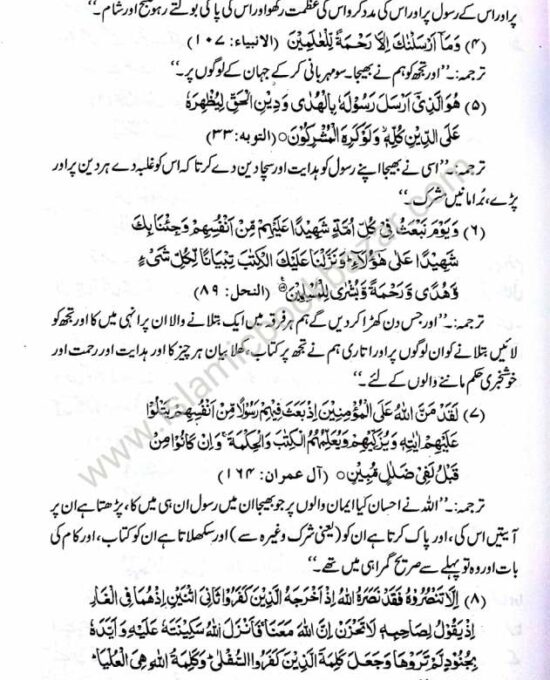 پر اور اس کے رسول پر اور اس کی مدد کرو اس کی عظمت رکھو اور اس کی پاکی بولتے رہو صبح اور شام۔‘‘
(۴) وَمَا اَرْسَلْنٰكَ اِلَّا رَحْمَةً لِّلْعٰلَمِيْنَ (الانبیاء: ۱۰۷)
ترجمہ:۔’’اور تجھ کو ہم نے بھیجا۔ سو مہربانی کر کے جہان کے لوگوں پر۔‘‘
(۵) هُوَ الَّذِيْٓ اَرْسَلَ رَسُوْلَهٗ بِالْهُدٰى وَدِيْنِ الْحَقِّ لِيُظْهِرَهٗ
عَلَى الدِّيْنِ كُلِّهٖ وَلَوْ كَرِهَ الْمُشْرِكُوْنَ○ (التوبه: ۳۳)
ترجمہ:۔’’اسی نے بھیجا اپنے رسول کو ہدایت اور سچا دین دے کر تاکہ اس کو غلبہ دے ہر دین پر اور
پڑے، بُرا مانیں مشرک۔‘‘
(۶) وَيَوْمَ نَبْعَثُ فِيْ كُلِّ اُمَّةٍ شَهِيْدًا عَلَيْهِمْ مِّنْ اَنْفُسِهِمْ وَجِئْنَا بِكَ
شَهِيْدًا عَلٰى هٰٓؤُلَآءِ وَنَزَّلْنَا عَلَيْكَ الْكِتٰبَ تِبْيَانًا لِّكُلِّ شَيْءٍ
وَّهُدًى وَّرَحْمَةً وَّبُشْرٰى لِلْمُسْلِمِيْنَ (النحل: ۸۹)
ترجمہ:۔’’اور جس دن کھڑا کر دیں گے ہم ہر فرقہ میں ایک بتلانے والا ان پر انہی میں کا اور تجھ کو
لائیں بتلانے کو ان لوگوں پر اور اتاری ہم نے تجھ پر کتاب، کھلا بیان ہر چیز کا اور ہدایت اور رحمت اور
خوشخبری حکم ماننے والوں کے لئے۔‘‘
(۷) لَقَدْ مَنَّ اللّٰهُ عَلَى الْمُؤْمِنِيْنَ اِذْ بَعَثَ فِيْهِمْ رَسُوْلًا مِّنْ اَنْفُسِهِمْ يَتْلُوْا
عَلَيْهِمْ اٰيٰتِهٖ وَيُزَكِّيْهِمْ وَيُعَلِّمُهُمُ الْكِتٰبَ وَالْحِكْمَةَ وَاِنْ كَانُوْا مِنْ
قَبْلُ لَفِيْ ضَلٰلٍ مُّبِيْنٍ○ (آل عمران: ۱۶۴)
ترجمہ:۔’’اللہ نے احسان کیا ایمان والوں پر جو بھیجا ان میں رسول ان ہی میں کا، پڑھتا ہے ان پر
آیتیں اس کی، اور پاک کرتا ہے ان کو (یعنی شرک وغیرہ سے) اور سکھلاتا ہے ان کو کتاب، اور کام کی
بات اور وہ تو پہلے سے صریح گمراہی میں تھے۔‘‘
(۸) اِلَّا تَنْصُرُوْهُ فَقَدْ نَصَرَهُ اللّٰهُ اِذْ اَخْرَجَهُ الَّذِيْنَ كَفَرُوْا ثَانِيَ اثْنَيْنِ اِذْ هُمَا فِي الْغَارِ
اِذْ يَقُوْلُ لِصَاحِبِهٖ لَا تَحْزَنْ اِنَّ اللّٰهَ مَعَنَا فَاَنْزَلَ اللّٰهُ سَكِيْنَتَهٗ عَلَيْهِ وَاَيَّدَهٗ
بِجُنُوْدٍ لَّمْ تَرَوْهَا وَجَعَلَ كَلِمَةَ الَّذِيْنَ كَفَرُوا السُّفْلٰى وَكَلِمَةُ اللّٰهِ هِيَ الْعُلْيَا